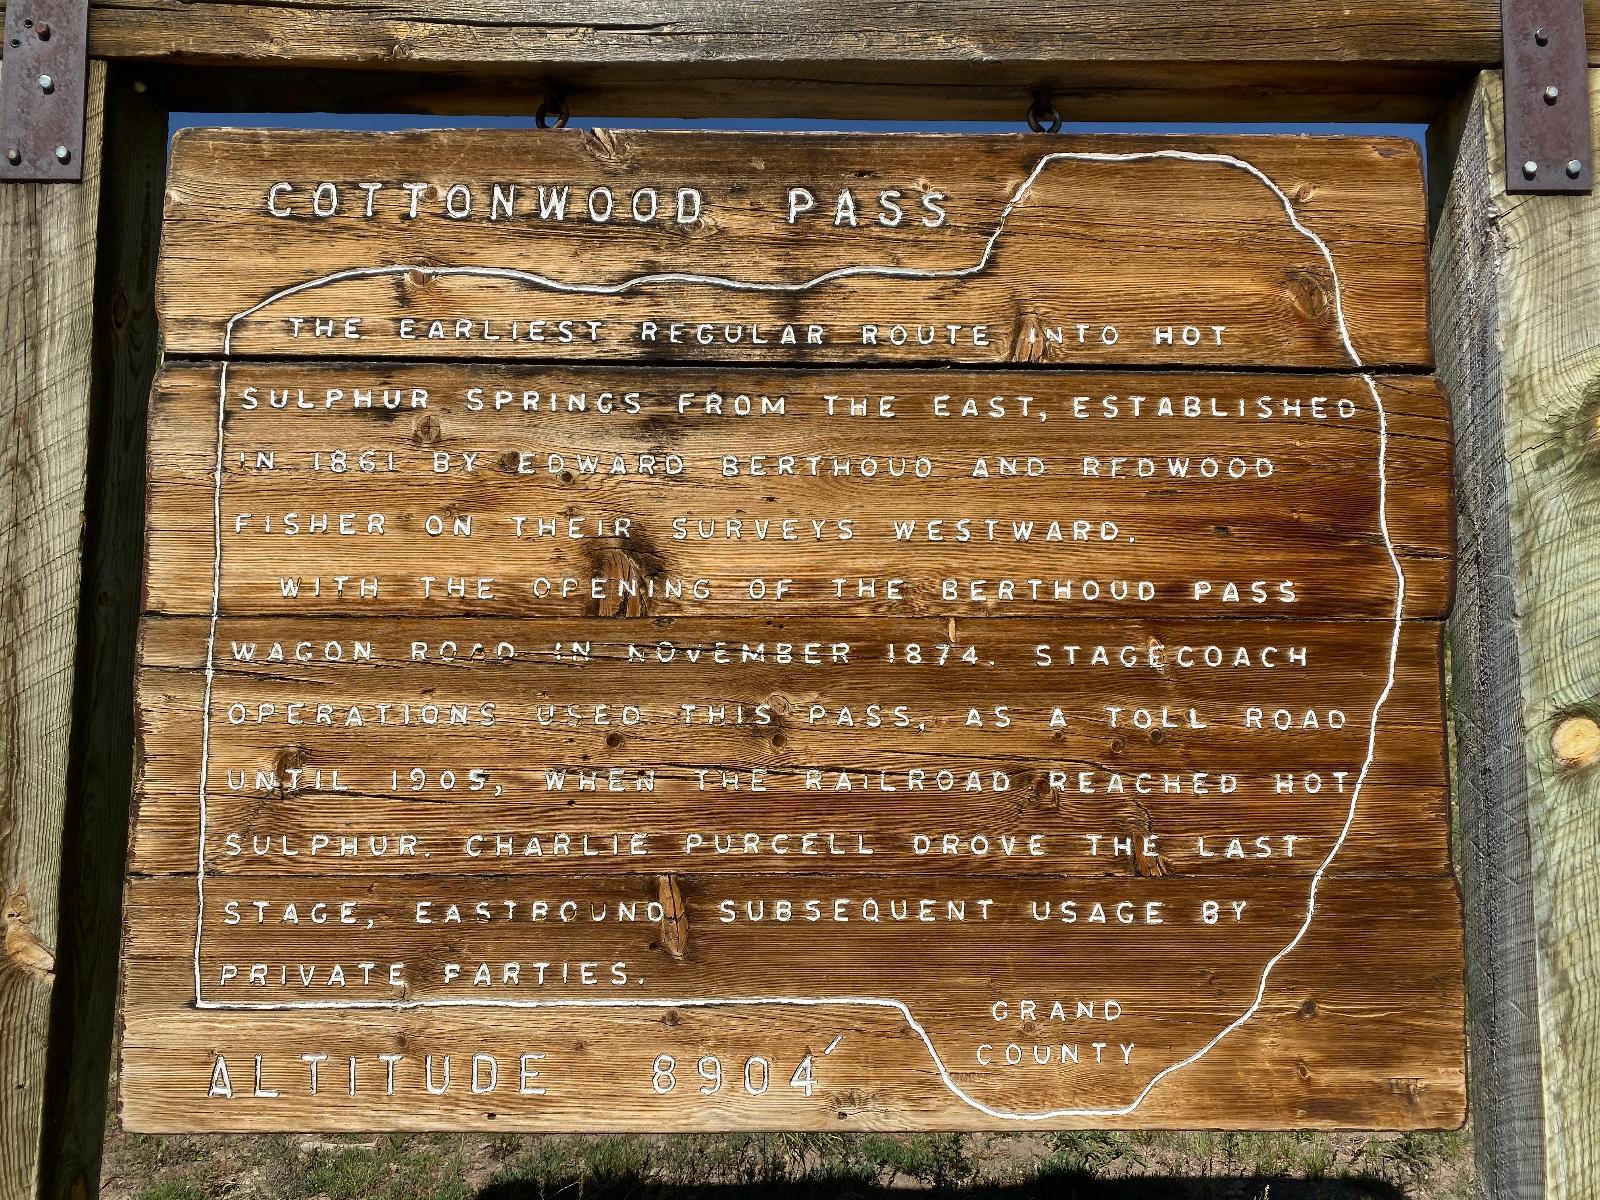 COTTONWOOD PASS
THE EARLIEST REGULAR ROUTE INTO HOT
SULPHUR SPRINGS FROM THE EAST, ESTABLISHED
IN 1861 BY EDWARD BERTHOUD AND REDWOOD
FISHER ON THEIR SURVEYS WESTWARD.
WITH THE OPENING OF THE BERTHOUD PASS
WAGON ROAD IN NOVEMBER 1874. STAGECOACH
OPERATIONS USED THIS PASS, AS A TOLL ROAD
UNTIL 1905, WHEN THE RAILROAD REACHED HOT
SULPHUR. CHARLIE PURCELL DROVE THE LAST
STAGE, EASTBOUND SUBSEQUENT USAGE BY
PRIVATE PARTIES.
GRAND
COUNTY
ALTITUDE 8904'